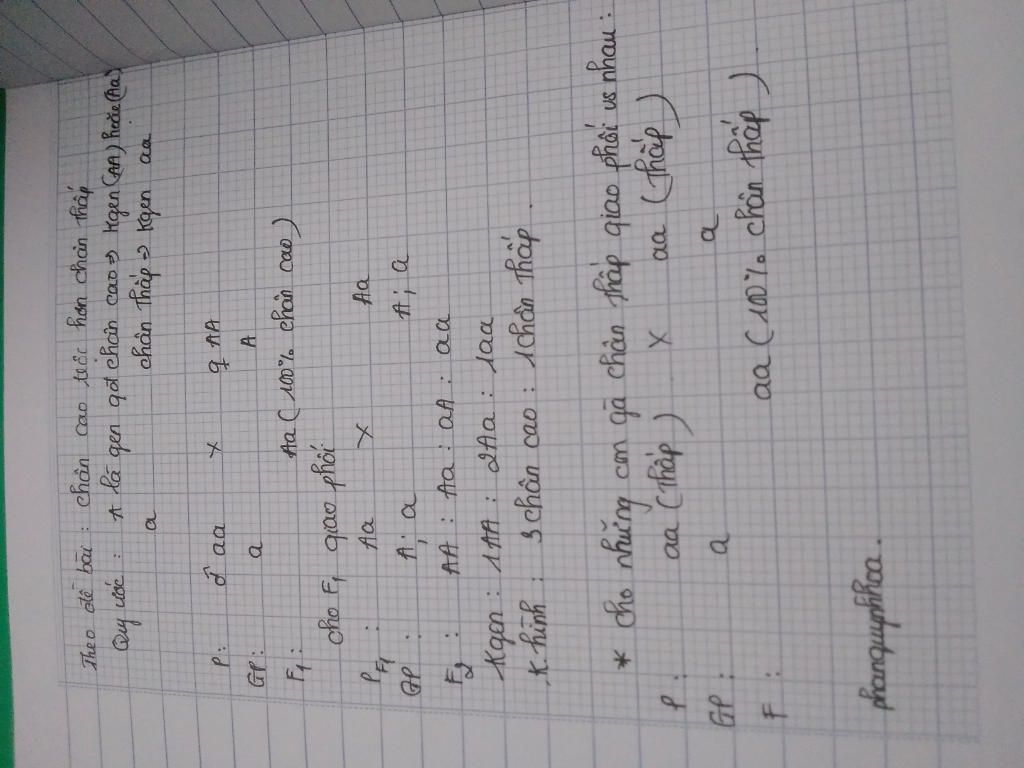 Theo đề bài : chân cao trội hơn chân thấp
Quy ước : A là gen qđ chân cao => Kgen (AA) hoặc (Aa)
a chân thấp => Kgen aa
P : ♂ aa x ♀ AA
GP : a A
F1 : Aa (100% chân cao)
cho F1 giao phối
PF1 : Aa x Aa
GP : A ; a A ; a
F2 : AA : Aa : aA : aa
Kgen : 1AA : 2Aa : 1aa
K hình : 3 chân cao : 1 chân thấp .
* cho những con gà chân thấp giao phối vs nhau :
P : aa (thấp) x aa (thấp)
GP : a a
F : aa (100% chân thấp) .
phanquynhhoa .